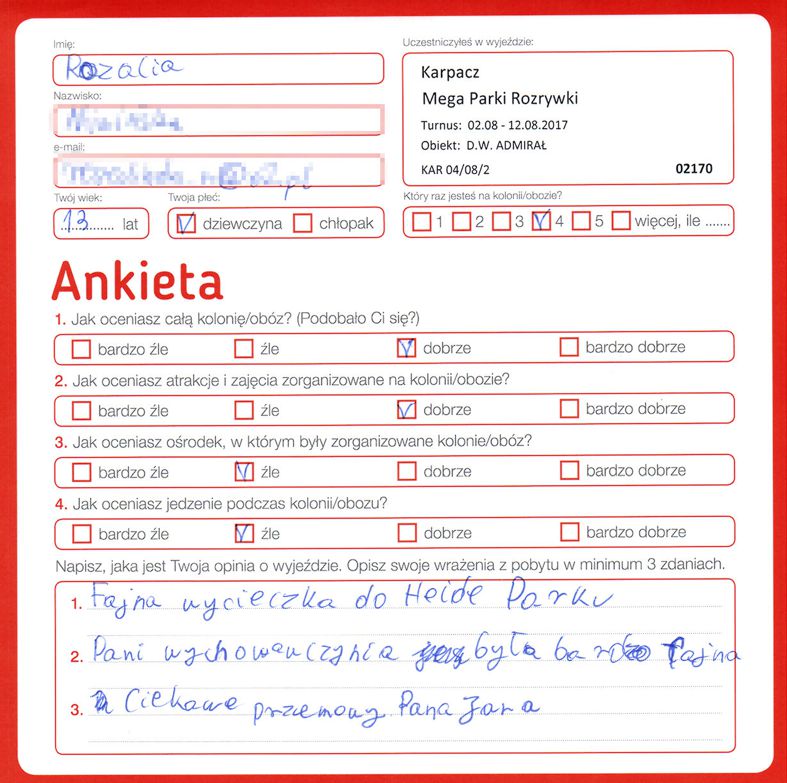 Imię:
Rozalia
Uczestniczyłeś w wyjeździe:
Karpacz
Mega Parki Rozrywki
Turnus: 02.08 - 12.08.2017
Obiekt: D.W. ADMIRAŁ
KAR 04/08/2 02170
Nazwisko:
e-mail:
Twój wiek:
13 lat
Twoja płeć:
dziewczyna chłopak
Który raz jesteś na kolonii/obozie?
1 2 3 4 5 więcej, ile .......
Ankieta
1. Jak oceniasz całą kolonię/obóz? (Podobało Ci się?)
bardzo źle źle dobrze bardzo dobrze
2. Jak oceniasz atrakcje i zajęcia zorganizowane na kolonii/obozie?
bardzo źle źle dobrze bardzo dobrze
3. Jak oceniasz ośrodek, w którym były zorganizowane kolonie/obóz?
bardzo źle źle dobrze bardzo dobrze
4. Jak oceniasz jedzenie podczas kolonii/obozu?
bardzo źle źle dobrze bardzo dobrze
Napisz, jaka jest Twoja opinia o wyjeździe. Opisz swoje wrażenia z pobytu w minimum 3 zdaniach.
1. Fajna wycieczka do Heide Parku
2. Pani wychowawczynia była bardzo fajna
3. Ciekawe przemowy Pana Jara